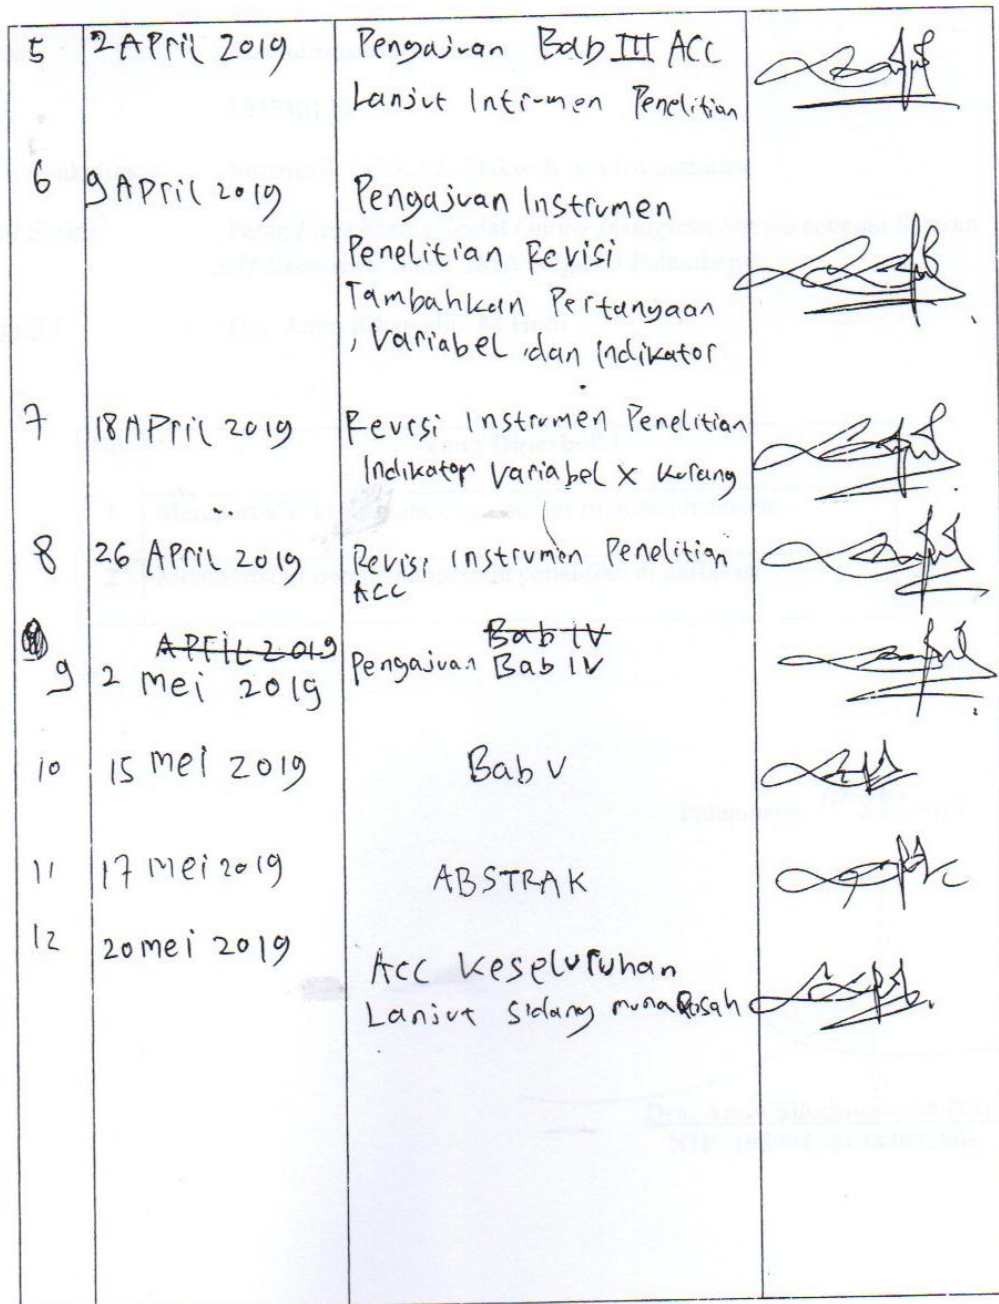 5 2 APril 2019 Pengajuan Bab III ACC
Lanjut Intrumen Penelitian
6 9 APril 2019 Pengajuan Instrumen
Penelitian Revisi
Tambahkan Pertanyaan
, Variabel dan Indikator
7 18 APril 2019 Revisi Instrumen Penelitian
Indikator Variabel X Kurang
8 26 April 2019 Revisi Instrumen Penelitian
ACC
APriL 2019 Bab IV
9 2 Mei 2019 Pengajuan Bab IV
10 15 Mei 2019 Bab V
11 17 Mei 2019 ABSTRAK
12 20 mei 2019
Acc Keseluruhan
Lanjut Sidang munaqosah